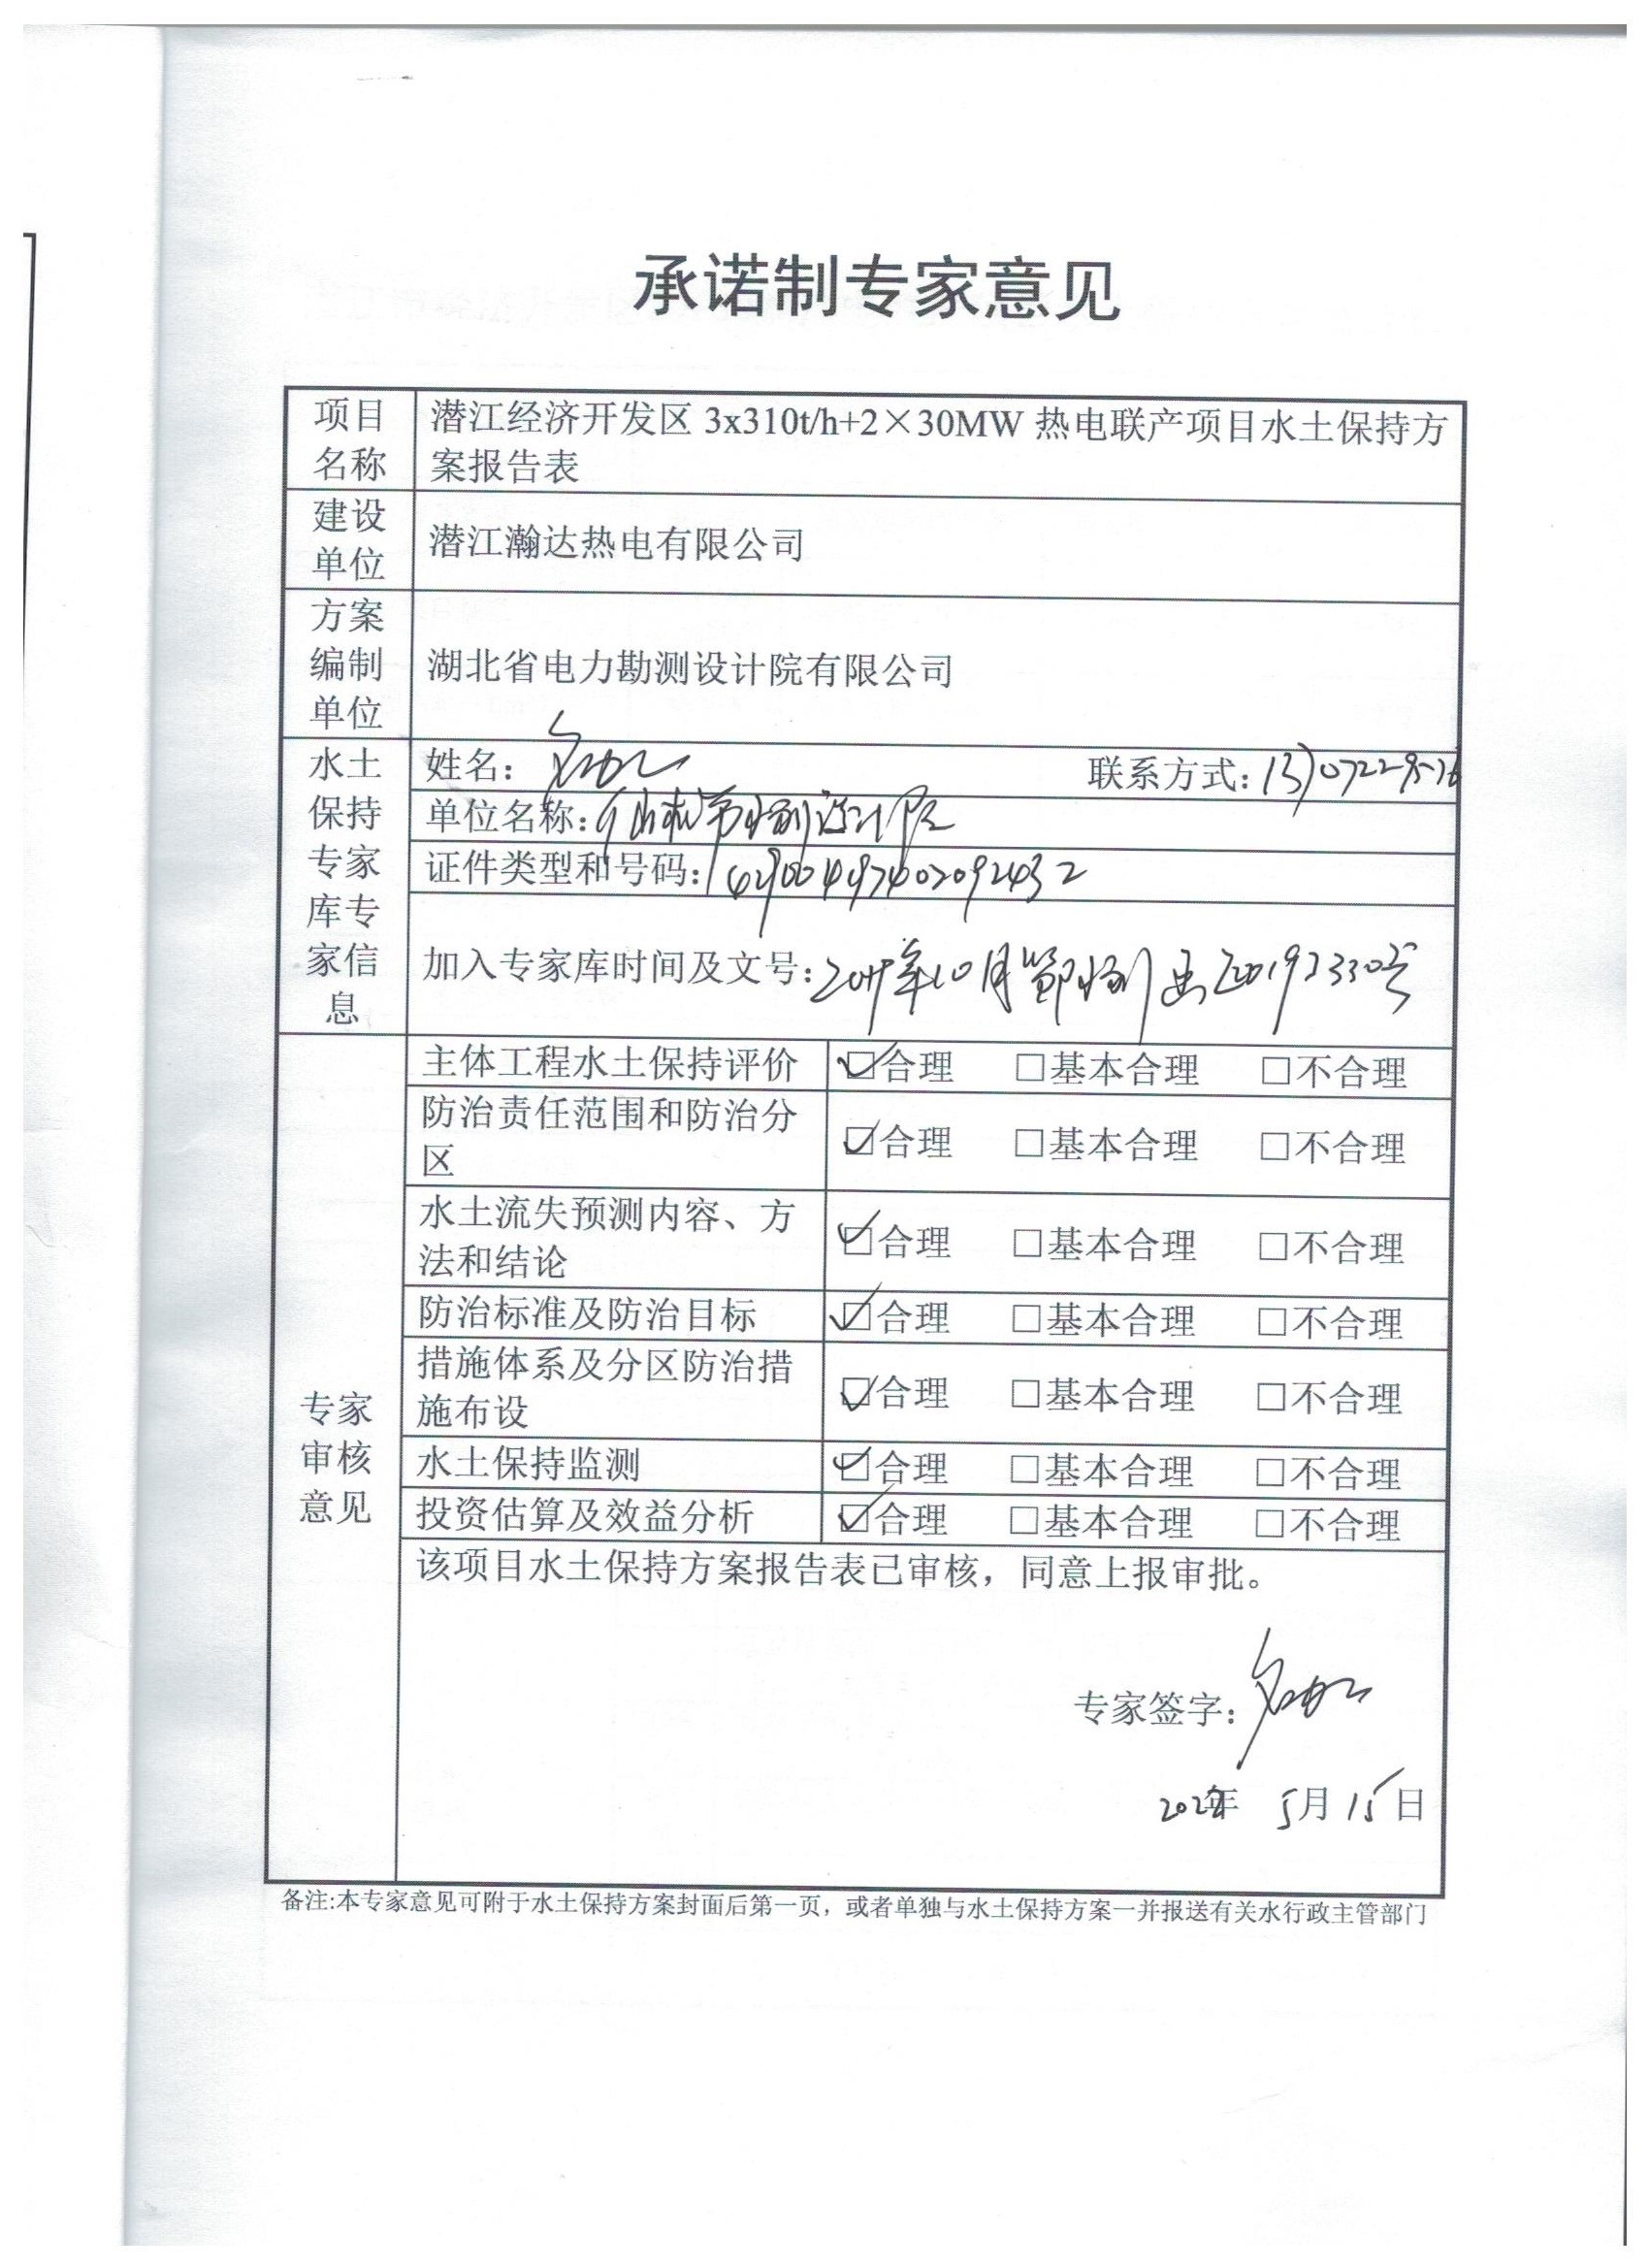 承诺制专家意见
项目
名称
潜江经济开发区 3x310t/h+2×30MW 热电联产项目水土保持方
案报告表
建设
单位
潜江瀚达热电有限公司
方案
编制
单位
湖北省电力勘测设计院有限公司
水土
保持
专家
库专
家信
息
姓名：
联系方式：
单位名称：
证件类型和号码：
加入专家库时间及文号：2019年10月鄂水利函[2019]330号
专家
审核
意见
主体工程水土保持评价 ☑合理 □基本合理 □不合理
防治责任范围和防治分
区
☑合理 □基本合理 □不合理
水土流失预测内容、方
法和结论
☑合理 □基本合理 □不合理
防治标准及防治目标 ☑合理 □基本合理 □不合理
措施体系及分区防治措
施布设
☑合理 □基本合理 □不合理
水土保持监测 ☑合理 □基本合理 □不合理
投资估算及效益分析 ☑合理 □基本合理 □不合理
该项目水土保持方案报告表已审核，同意上报审批。
专家签字：
2022年 5月 15日
备注:本专家意见可附于水土保持方案封面后第一页，或者单独与水土保持方案一并报送有关水行政主管部门